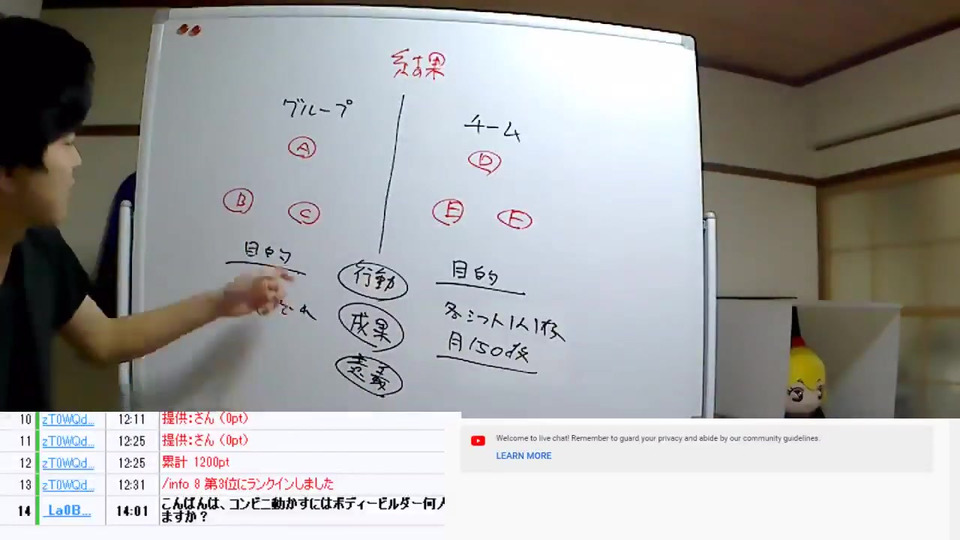 結果
グループ
チーム
A
D
B
C
E
F
目的
行動
目的
成果
各シフト1人1枚
月150枚
意義
10 zT0WQd... 12:11 提供:さん(0pt)
11 zT0WQd... 12:25 提供:さん(0pt)
12 zT0WQd... 12:25 累計 1200pt
13 zT0WQd... 12:31 /info 8 第3位にランクインしました
14 _La0B... 14:01 こんばんは、コンビニ動かすにはボディービルダー何人
ますか?
Welcome to live chat! Remember to guard your privacy and abide by our community guidelines.
LEARN MORE